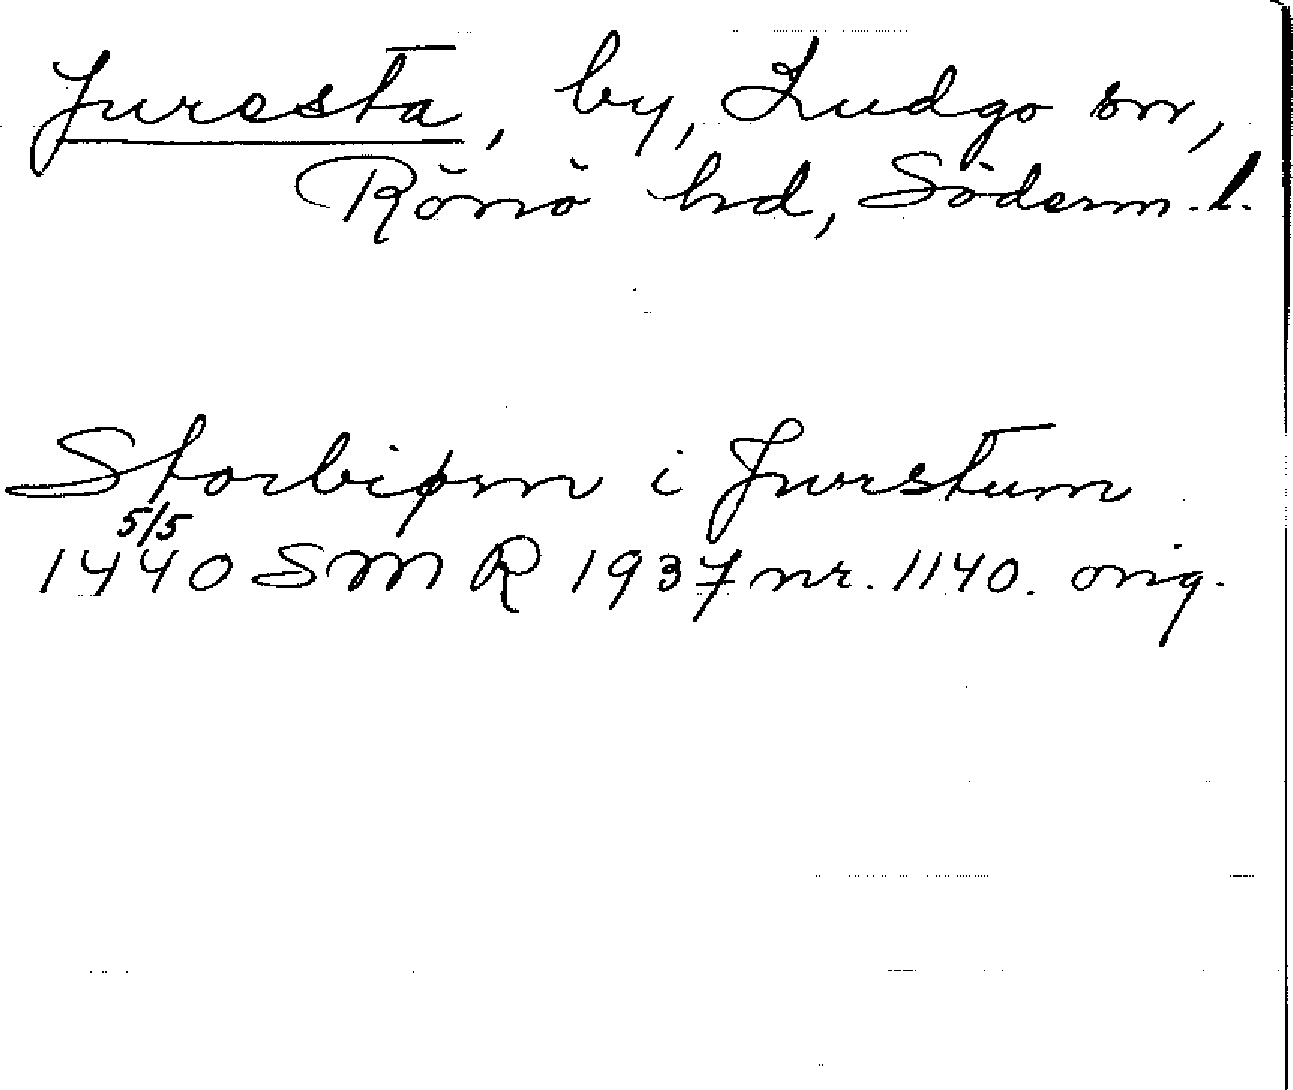 Juresta, by, Ludgo sn,
Rönö hd, Söderm. l.
Storbiørn i Jurstum
5/5
1440 SMR 1937 nr. 1140. orig.